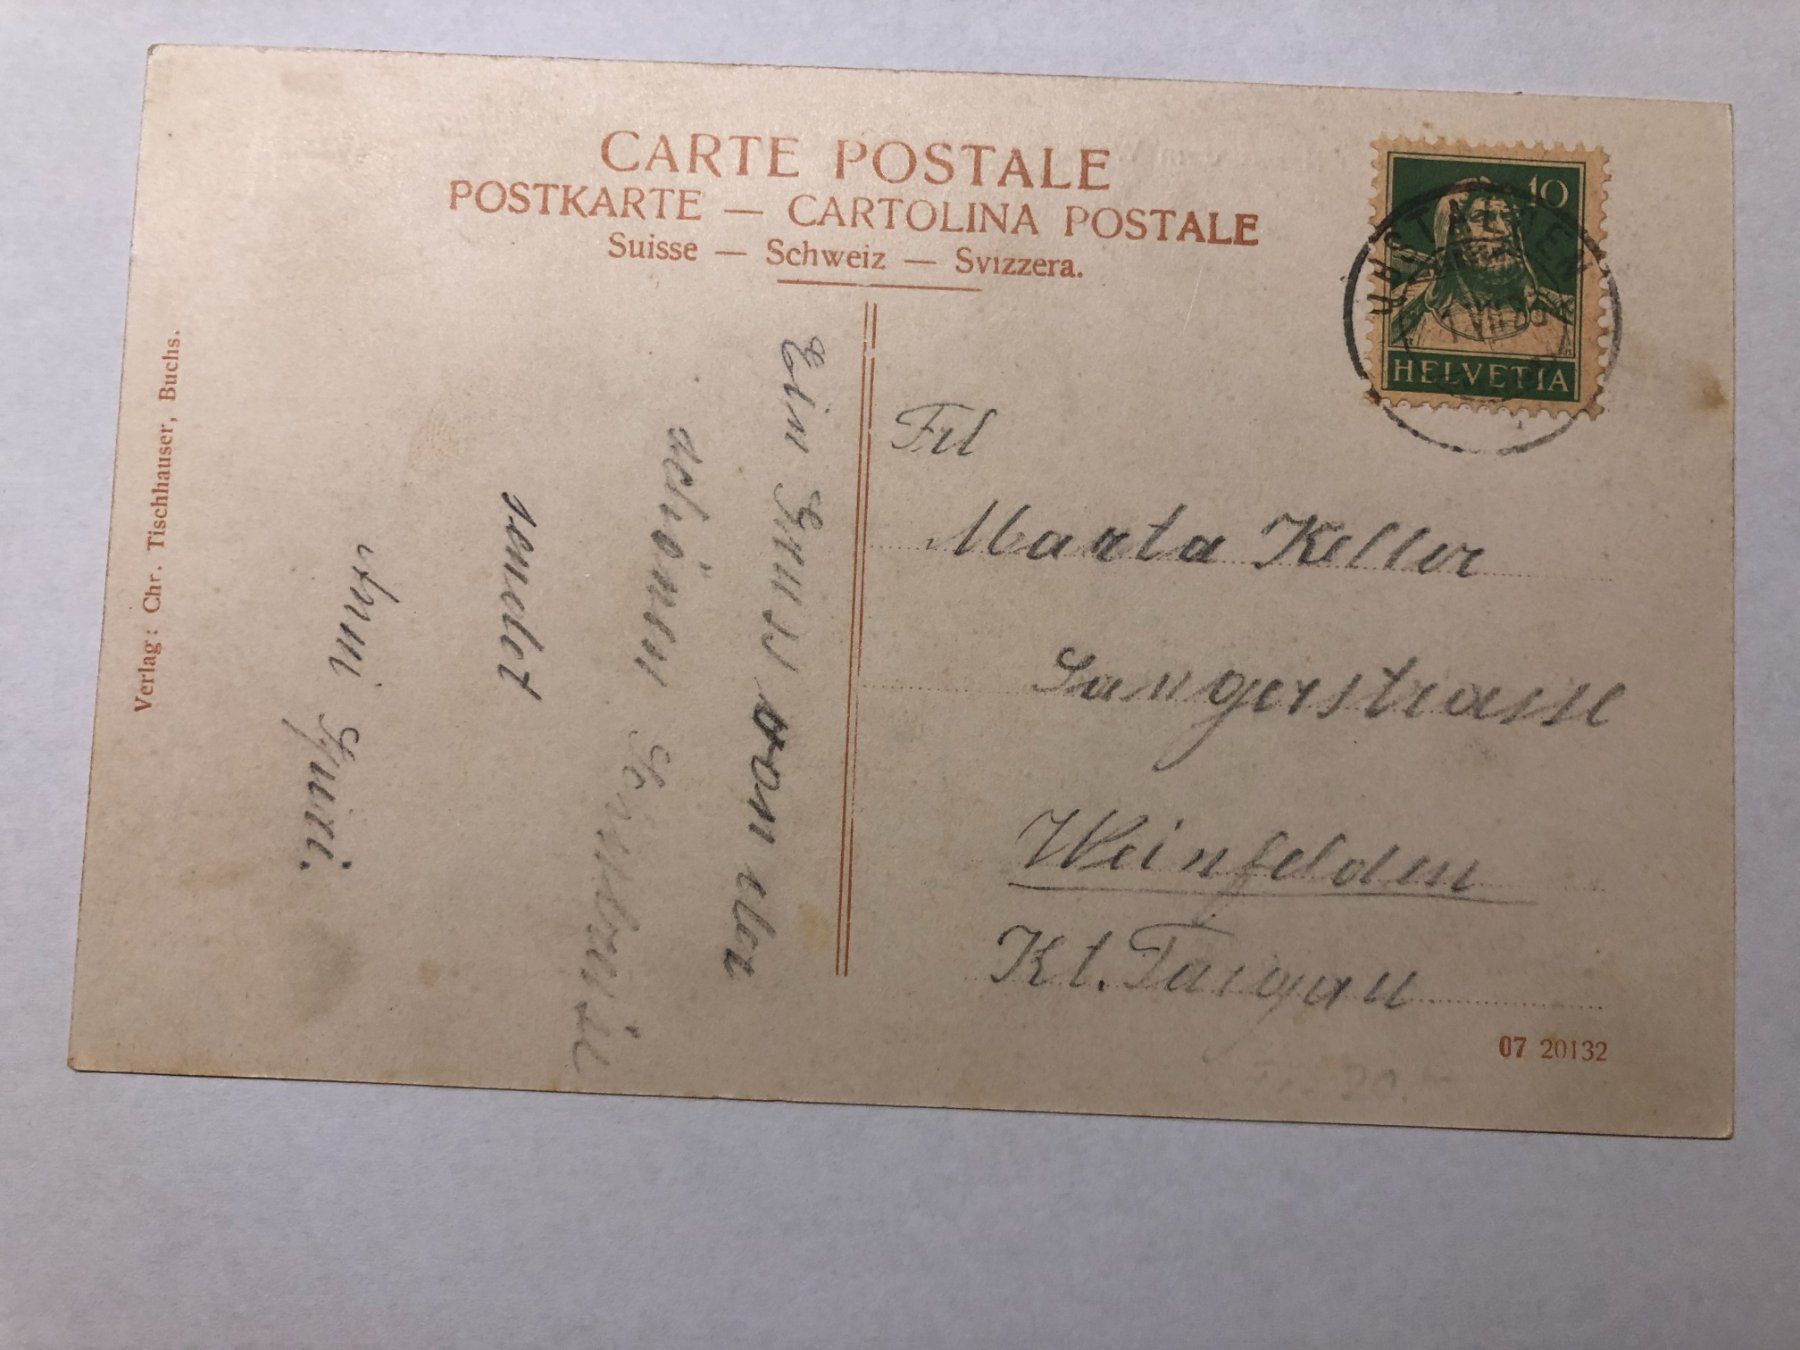 CARTE POSTALE
POSTKARTE — CARTOLINA POSTALE
Suisse — Schweiz — Svizzera.
10
HELVETIA
Verlag: Chr. Tischhauser, Buchs.
Ein Gruss von der
schönen
sendet
Anni
Frl
Marta Keller
Sangerstrasse
Weinfelden
Kt. Turgau
07 20132